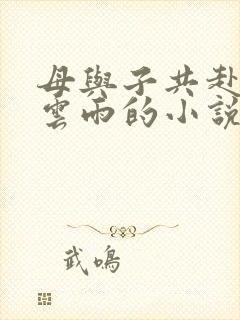 母與子共赴
雲雨的小說
武鳴